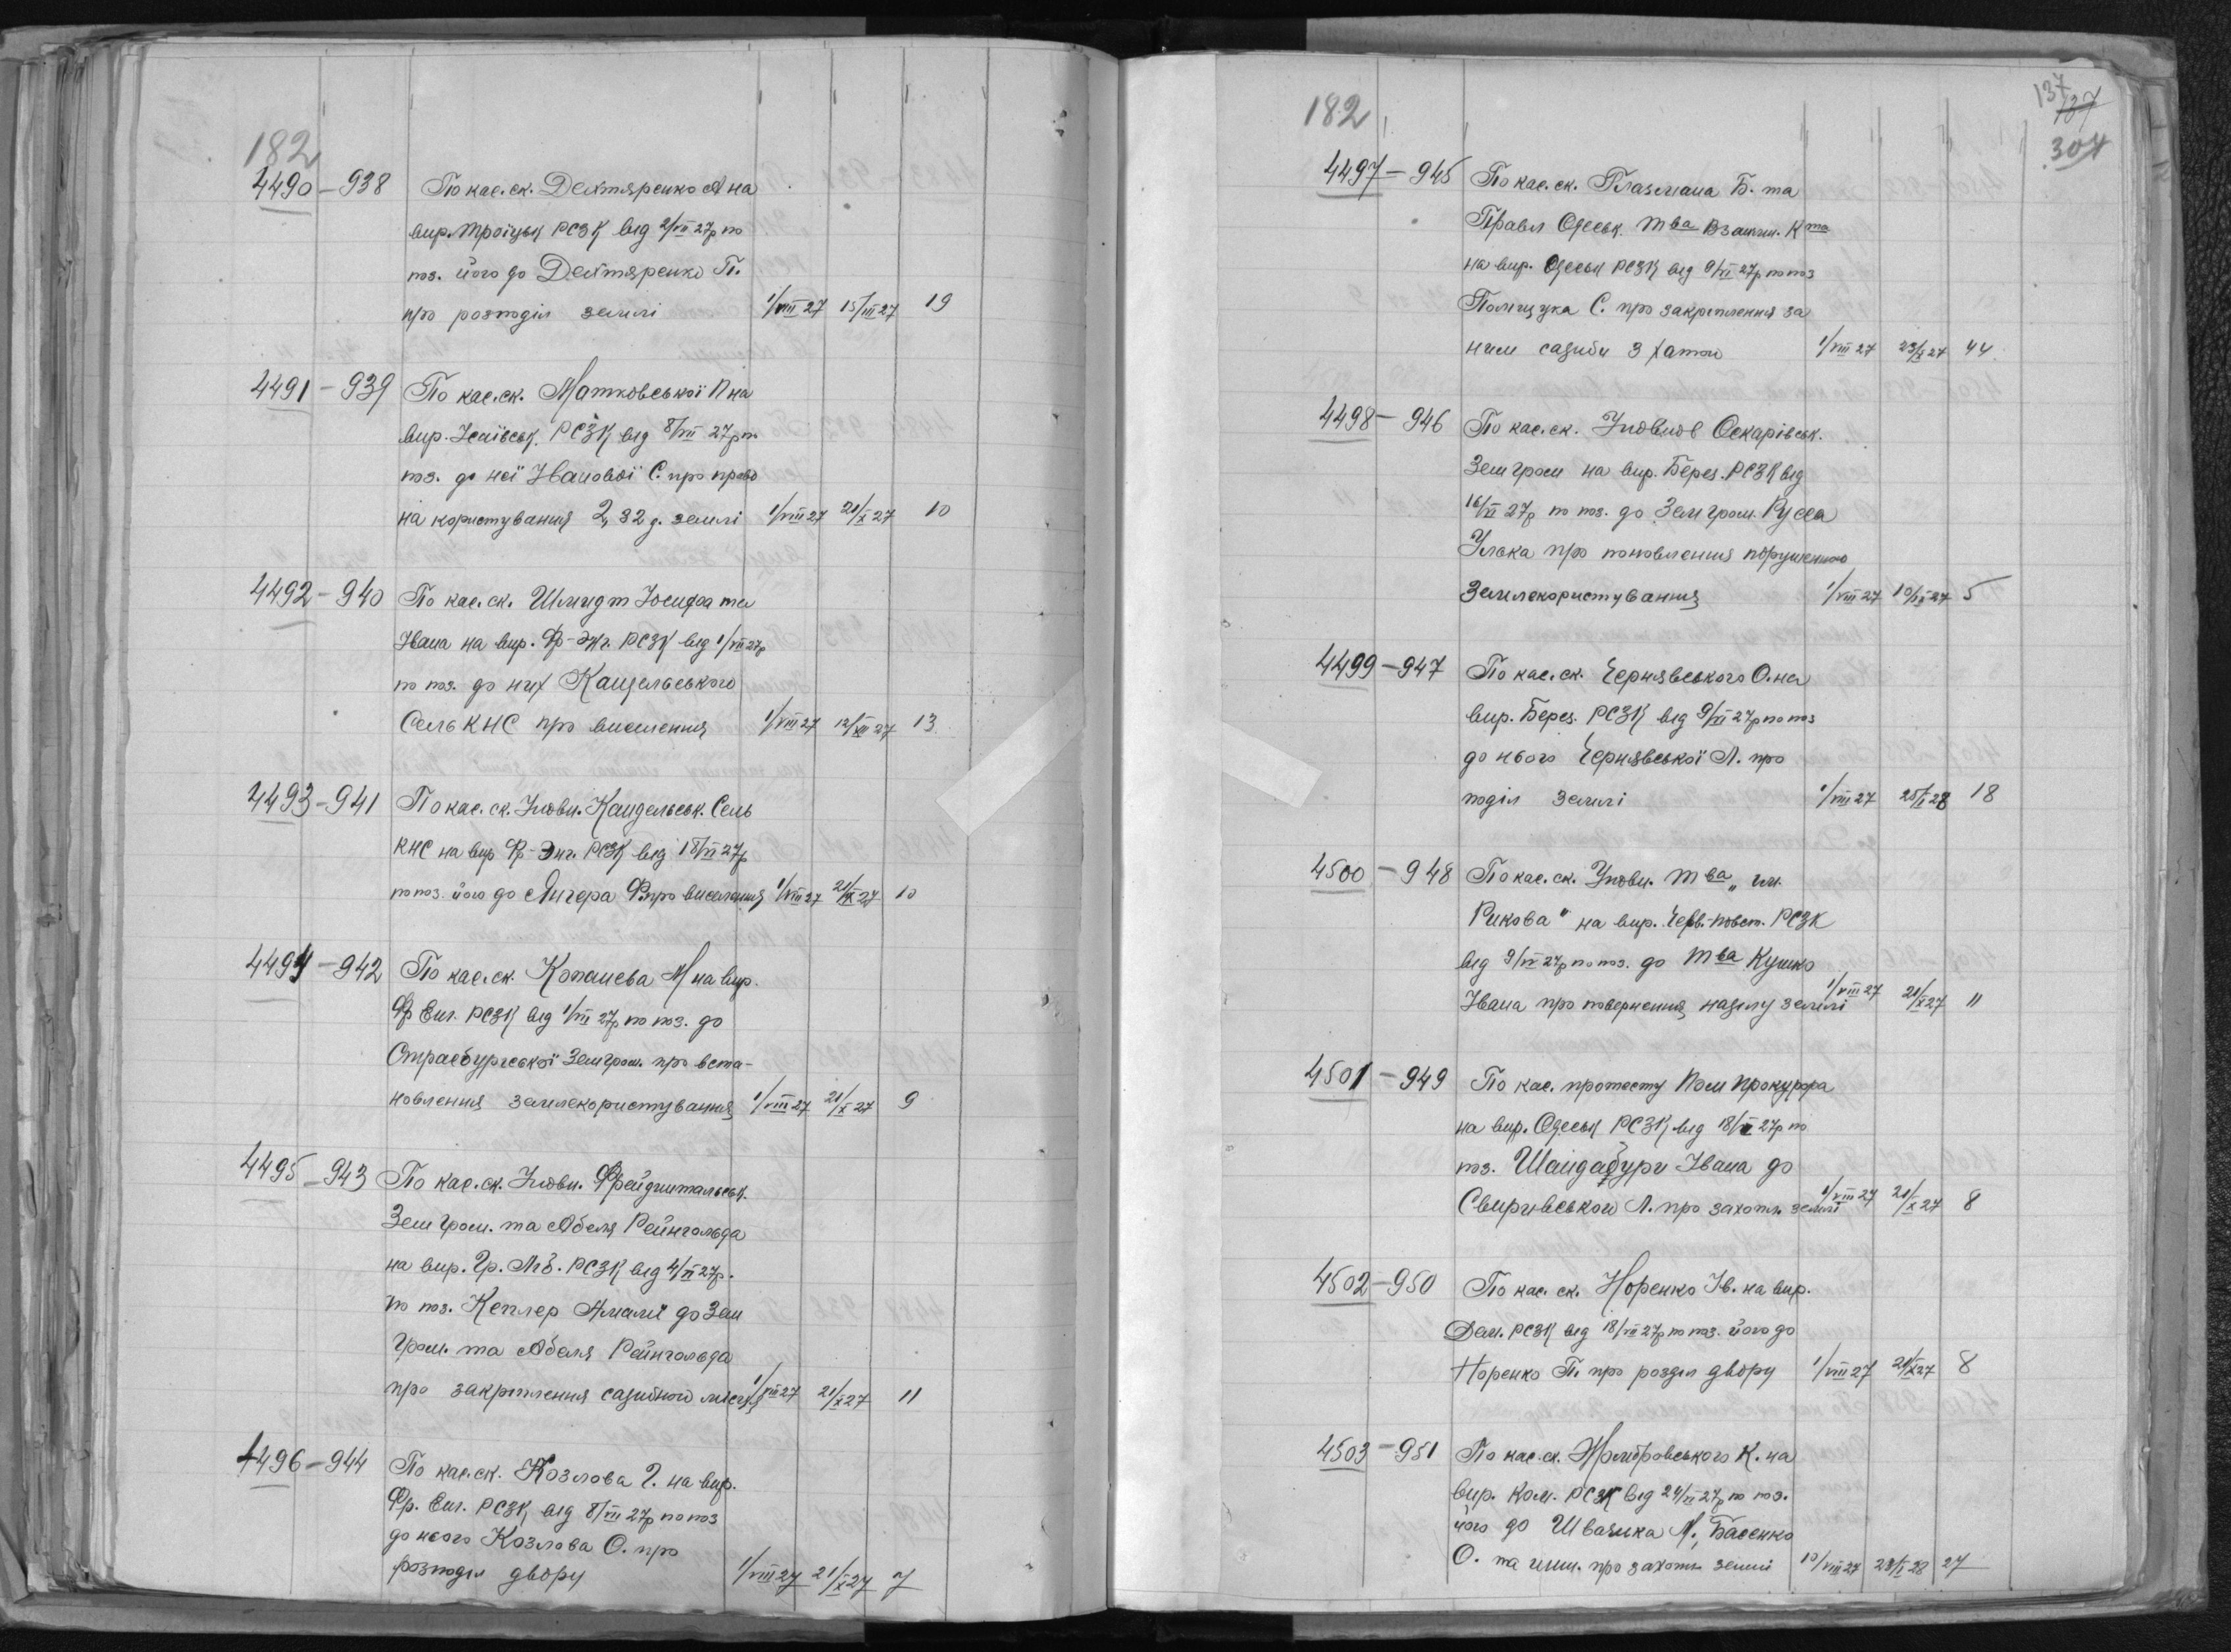 182
4490 – 938 По кас. ск. Дехтяренко А на
вир. Троіцьк РСЗК від 2/VII 27р по
поз. його до Дехтяренко П.
про розподіл землі 1/VIII 27 15/III 27 19
4491 – 939 По кас. ск. Матковської П на
вир. Ісаївськ. РСЗК від 8/VII 27р по
поз. до неї Іванової С. про право
на користування 2,32 д. землі 1/VIII 27 21/X 27 10
4492 – 940 По кас. ск. Шмидт Іосифа та
Івана на вир. Ф-Энг. РСЗК від 1/VII 27р
по поз. до них Кандельського
Сель КНС про виселення 1/VIII 27 12/XII 27 13
4493 – 941 По кас. ск. Уповн. Кандельськ. Сель
КНС на вир Ф-Энг. РСЗК від 18/VI 27р
по поз. його до Янгера Ф. про виселення 1/VIII 27 21/X 27 10
4494 – 942 По кас. ск. Копанева М на вир.
Ф Енг. РСЗК від 1/VII 27р по поз. до
Страсбургської Земгром. про вста-
новлення землекористування 1/VIII 27 21/X 27 9
4495 – 943 По кас. ск. Уповн. Фрейдентальськ.
Зем Гром. та Абеля Рейнгольда
на вир. Гр. Ліб. РСЗК від 4/VI 27р.
по поз. Кеплер Амалії до Зем
Гром. та Абеля Рейнгольда
про закріплення садибного місця 1/VIII 27 21/X 27 11
4496 – 944 По кас. ск. Козлова Г. на вир.
Фр. Енг. РСЗК від 8/VII 27р по поз
до нього Козлова О. про
розподіл двору 1/VIII 27 21/X 27 7
182
137
137
304
4497 – 945 По кас. ск. Глазмана Б. та
Правл Одеськ. Тва Взаємн. Кта
на вир. Одеськ РСЗК від 9/VI 27р по поз
Поліщука С. про закріплення за
ним садиби з хатою 1/VIII 27 23/X 27 44
4498 – 946 По кас. ск. Уповнов Оскарівськ.
Земгром на вир. Берез. РСЗК від
16/VI 27р по поз. до Земгром. Русса
Улька про поновлення порушеного
Землекористування 1/VIII 27 10/IX 27 5
4499 – 947 По кас. ск. Чернявського О. на
вир. Берез. РСЗК від 9/VI 27р по поз
до нього Чернявської Л. про
поділ землі 1/VIII 27 25/I 28 18
4500 – 948 По кас. ск. Уповн. Тва „ім.
Рикова" на вир. Черв.-повст. РСЗК
від 9/VI 27р по поз. до Тва Кушко
Івана про повернення наділу землі 1/VIII 27 21/X 27 11
4501 – 949 По кас. протесту Пом Прокурора
на вир. Одеськ РСЗК від 18/V 27р по
поз. Шандабури Івана до
Свиривського Л. про захопл. землі 1/VIII 27 21/X 27 8
4502 – 950 По кас. ск. Норенко Ів. на вир.
Дем. РСЗК від 18/VI 27р по поз. його до
Норенко П. про розділ двору 1/VIII 27 21/X 27 8
4503 – 951 По кас. ск. Домбровського К. на
вир. Ком. РСЗК від 24/VI 27р по поз.
його до Швачка М., Басенко
О. та инш. про захопл. землі 10/VIII 27 28/I 28 27